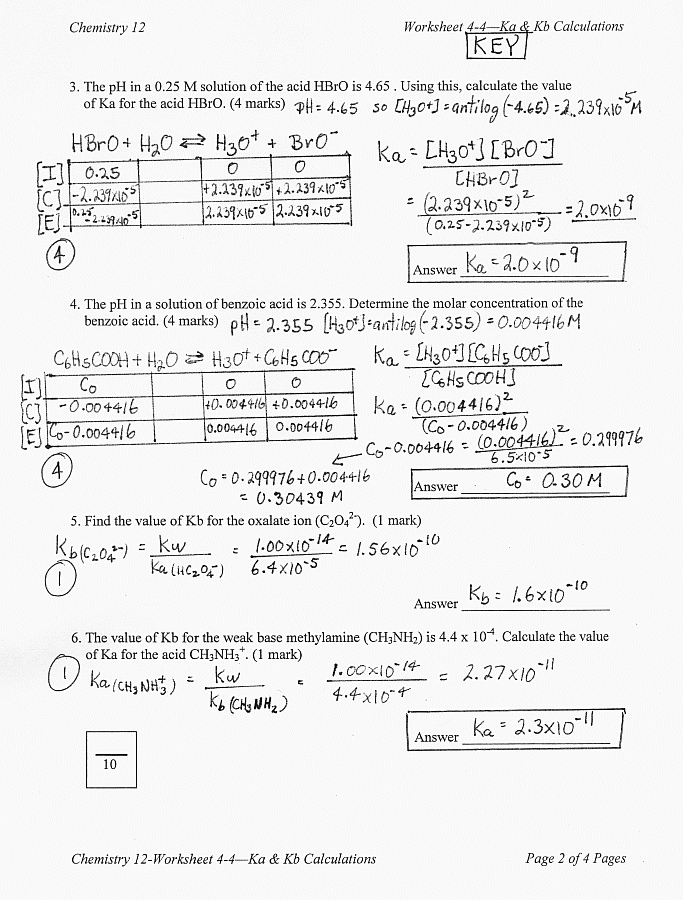 Chemistry 12 Worksheet 4-4—Ka & Kb Calculations
KEY
3. The pH in a 0.25 M solution of the acid HBrO is 4.65 . Using this, calculate the value
of Ka for the acid HBrO. (4 marks) pH = 4.65 so [H₃O⁺] = antilog(-4.65) = 2.239x10⁻⁵M
HBrO + H₂O ⇌ H₃O⁺ + BrO⁻
Ka = [H₃O⁺][BrO⁻]
[HBrO]
[I] 0.25 0 0
[C] -2.239x10⁻⁵ +2.239x10⁻⁵ +2.239x10⁻⁵
[E] 0.25-2.239x10⁻⁵ 2.239x10⁻⁵ 2.239x10⁻⁵
= (2.239x10⁻⁵)² = 2.0x10⁻⁹
(0.25-2.239x10⁻⁵)
4
Answer Ka = 2.0 x 10⁻⁹
4. The pH in a solution of benzoic acid is 2.355. Determine the molar concentration of the
benzoic acid. (4 marks) pH = 2.355 [H₃O⁺] = antilog(-2.355) = 0.004416 M
C₆H₅COOH + H₂O ⇌ H₃O⁺ + C₆H₅COO⁻
Ka = [H₃O⁺][C₆H₅COO⁻]
[C₆H₅COOH]
[I] Co 0 0
[C] -0.004416 +0.004416 +0.004416
[E] Co-0.004416 0.004416 0.004416
Ka = (0.004416)²
(Co-0.004416)
Co-0.004416 = (0.004416)² = 0.299976
6.5x10⁻⁵
4
Co = 0.299976 + 0.004416
= 0.30439 M
Answer Co = 0.30 M
5. Find the value of Kb for the oxalate ion (C₂O₄²⁻). (1 mark)
Kb(C₂O₄²⁻) = Kw = 1.00x10⁻¹⁴ = 1.56x10⁻¹⁰
Ka(HC₂O₄⁻) 6.4x10⁻⁵
1
Answer Kb = 1.6x10⁻¹⁰
6. The value of Kb for the weak base methylamine (CH₃NH₂) is 4.4 x 10⁻⁴. Calculate the value
of Ka for the acid CH₃NH₃⁺. (1 mark)
1
Ka(CH₃NH₃⁺) = Kw = 1.00x10⁻¹⁴ = 2.27x10⁻¹¹
Kb(CH₃NH₂) 4.4x10⁻⁴
Answer Ka = 2.3x10⁻¹¹
10
Chemistry 12-Worksheet 4-4—Ka & Kb Calculations Page 2 of 4 Pages